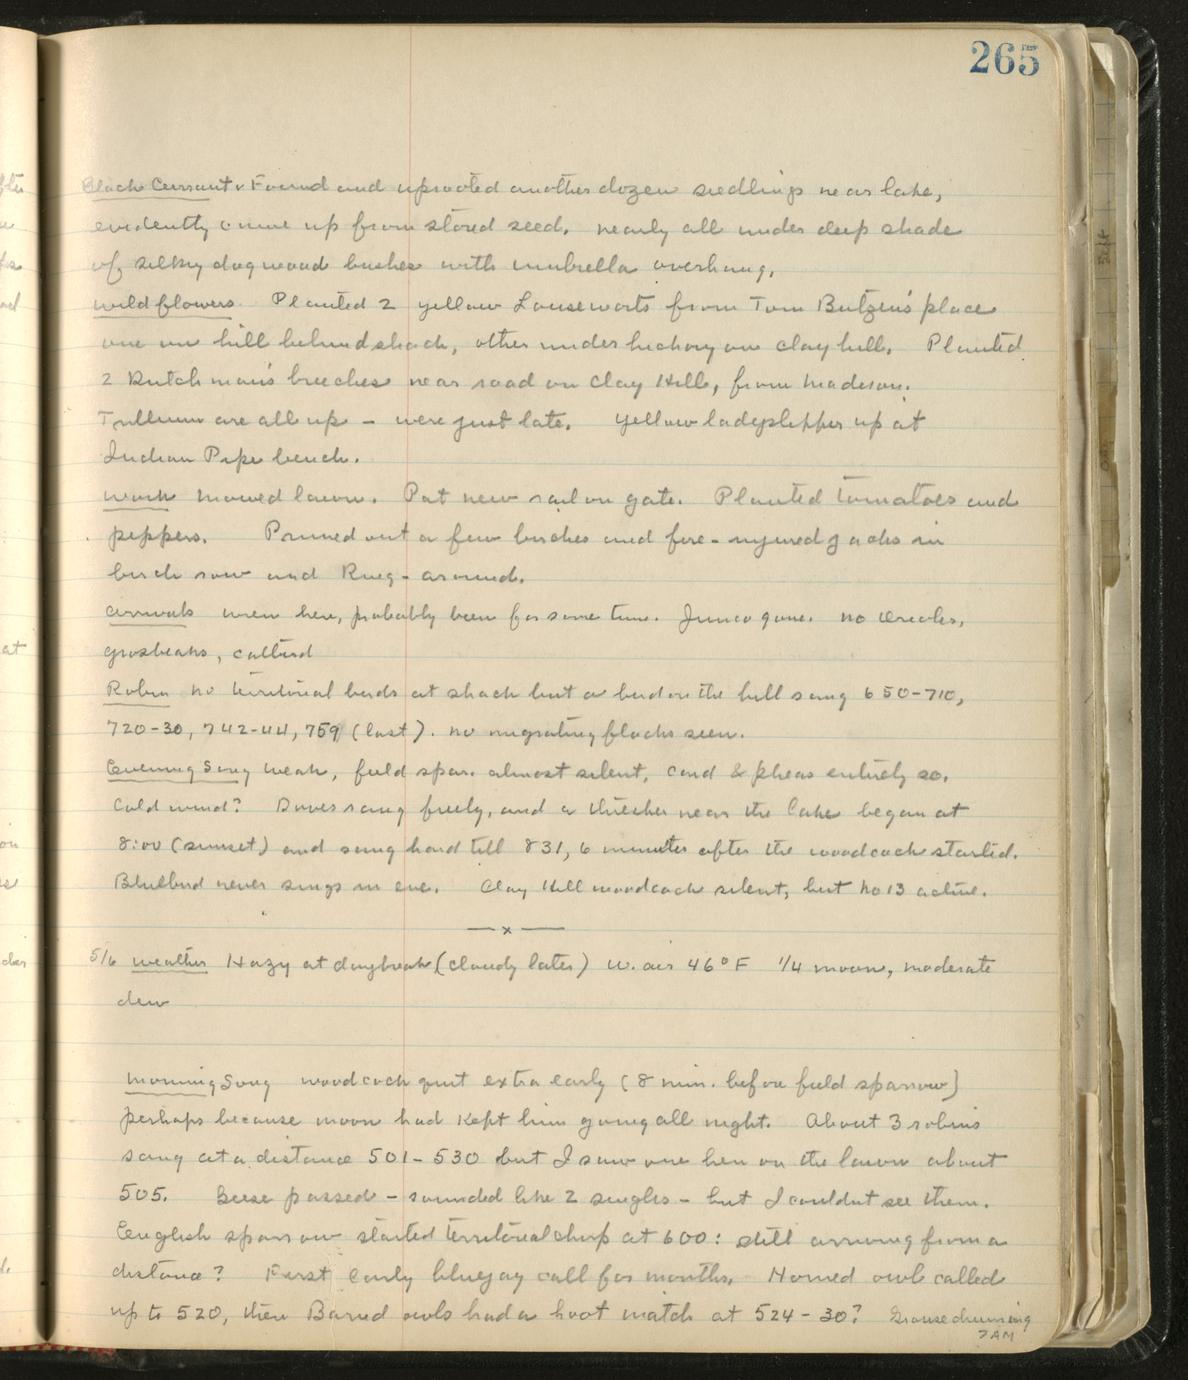 265
Black Currant. Found and uprooted another dozen seedlings near lake,
evidently come up from stored seed, nearly all under deep shade
of silky dogwood bushes with umbrella overhang.
Wildflowers Planted 2 yellow Louseworts from Tom Butzen's place
one on hill behind shack, other under hickory on clay hill. Planted
2 Dutchman's breeches near road on Clay Hill, from Madison.
Trillium are all up – were just late. Yellow ladyslipper up at
Indian Pipe bench.
Work Mowed lawn. Put new rail on gate. Planted tomatoes and
peppers. Pruned out a few birches and fire-injured jacks in
birch row and Ring-around.
Arrivals wren here, probably been for some time. Junco gone. No Orioles,
grosbeaks, catbird
Robin no territorial birds at shack but a bird on the hill sang 650-710,
720-30, 742-44, 759 (last). No migrating flocks seen.
Evening Song weak, field spar. almost silent, card & pheas entirely so.
Cold wind? Doves sang freely, and a thrasher near the lake began at
8:00 (sunset) and sang hard till 831, 6 minutes after the woodcock started.
Bluebird never sings in eve. Clay Hill woodcock silent, but No 13 active.
—x—
5/6 weather Hazy at daybreak (cloudy later) W. air 46°F 1/4 moon, moderate
dew
Morning Song woodcock quit extra early (8 min. before field sparrow)
perhaps because moon had kept him going all night. About 3 robins
sang at a distance 501-530 but I saw one hen on the lawn about
505. Geese passed – sounded like 2 singles – but I couldnt see them.
English sparrow started territorial chirp at 600: still arriving from a
distance? First early bluejay call for months. Horned owl called
up to 520, then Barred owls had a hoot match at 524-30? Grouse drumming
7 AM